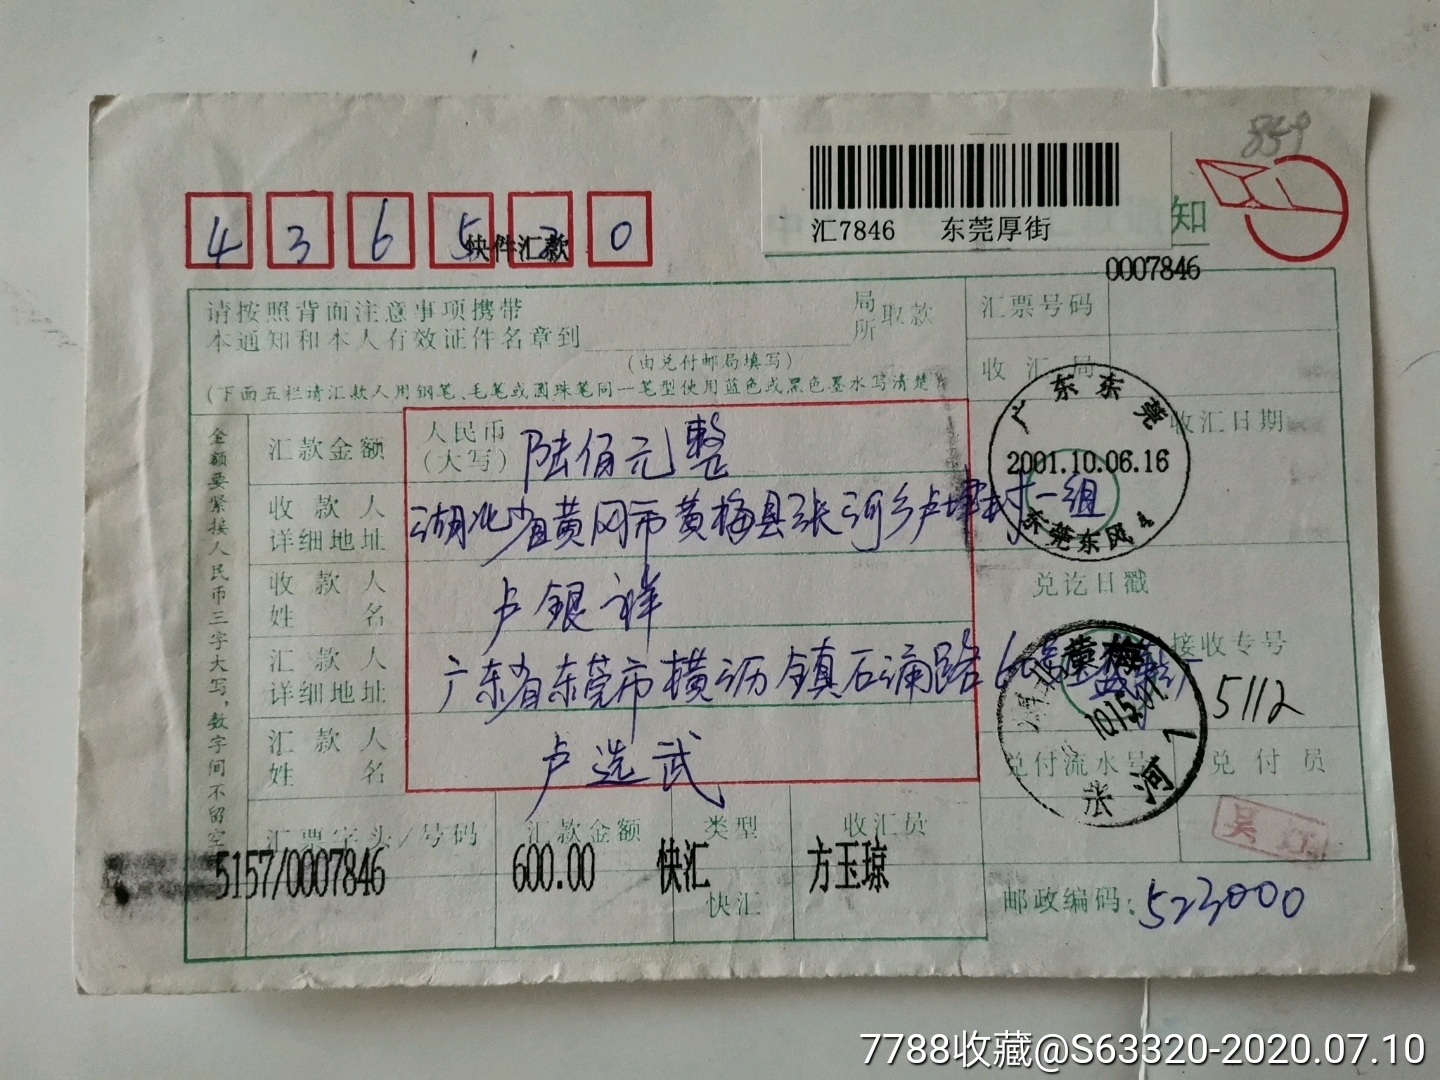 859
汇7846 东莞厚街
知
0007846
4 3 6 5 0
快件汇款
请按照背面注意事项携带
本通知和本人有效证件名章到
局所取款
(由兑付邮局填写)
(下面五栏请汇款人用钢笔、毛笔或圆珠笔同一笔型使用蓝色或黑色墨水写清楚)
汇票号码
收汇局
收汇日期
广东东莞
2001.10.06.16
东莞东风4
金额要紧接人民币三字大写,数字间不留空
汇款金额
人民币
(大写)
陆佰元整
收款人
详细地址
湖北省黄冈市黄梅县张河乡卢埤村一组
收款人
姓名
卢银祥
兑讫日戳
汇款人
详细地址
广东省东莞市横沥镇石涌路
接收专号
5112
黄梅
张河
汇款人
姓名
卢选武
兑付流水号
兑付员
吴
汇票字头/号码
汇款金额
类型
收汇员
5157/0007846
600.00
快汇
方玉琼
快汇
邮政编码:523000
7788收藏@S63320-2020.07.10